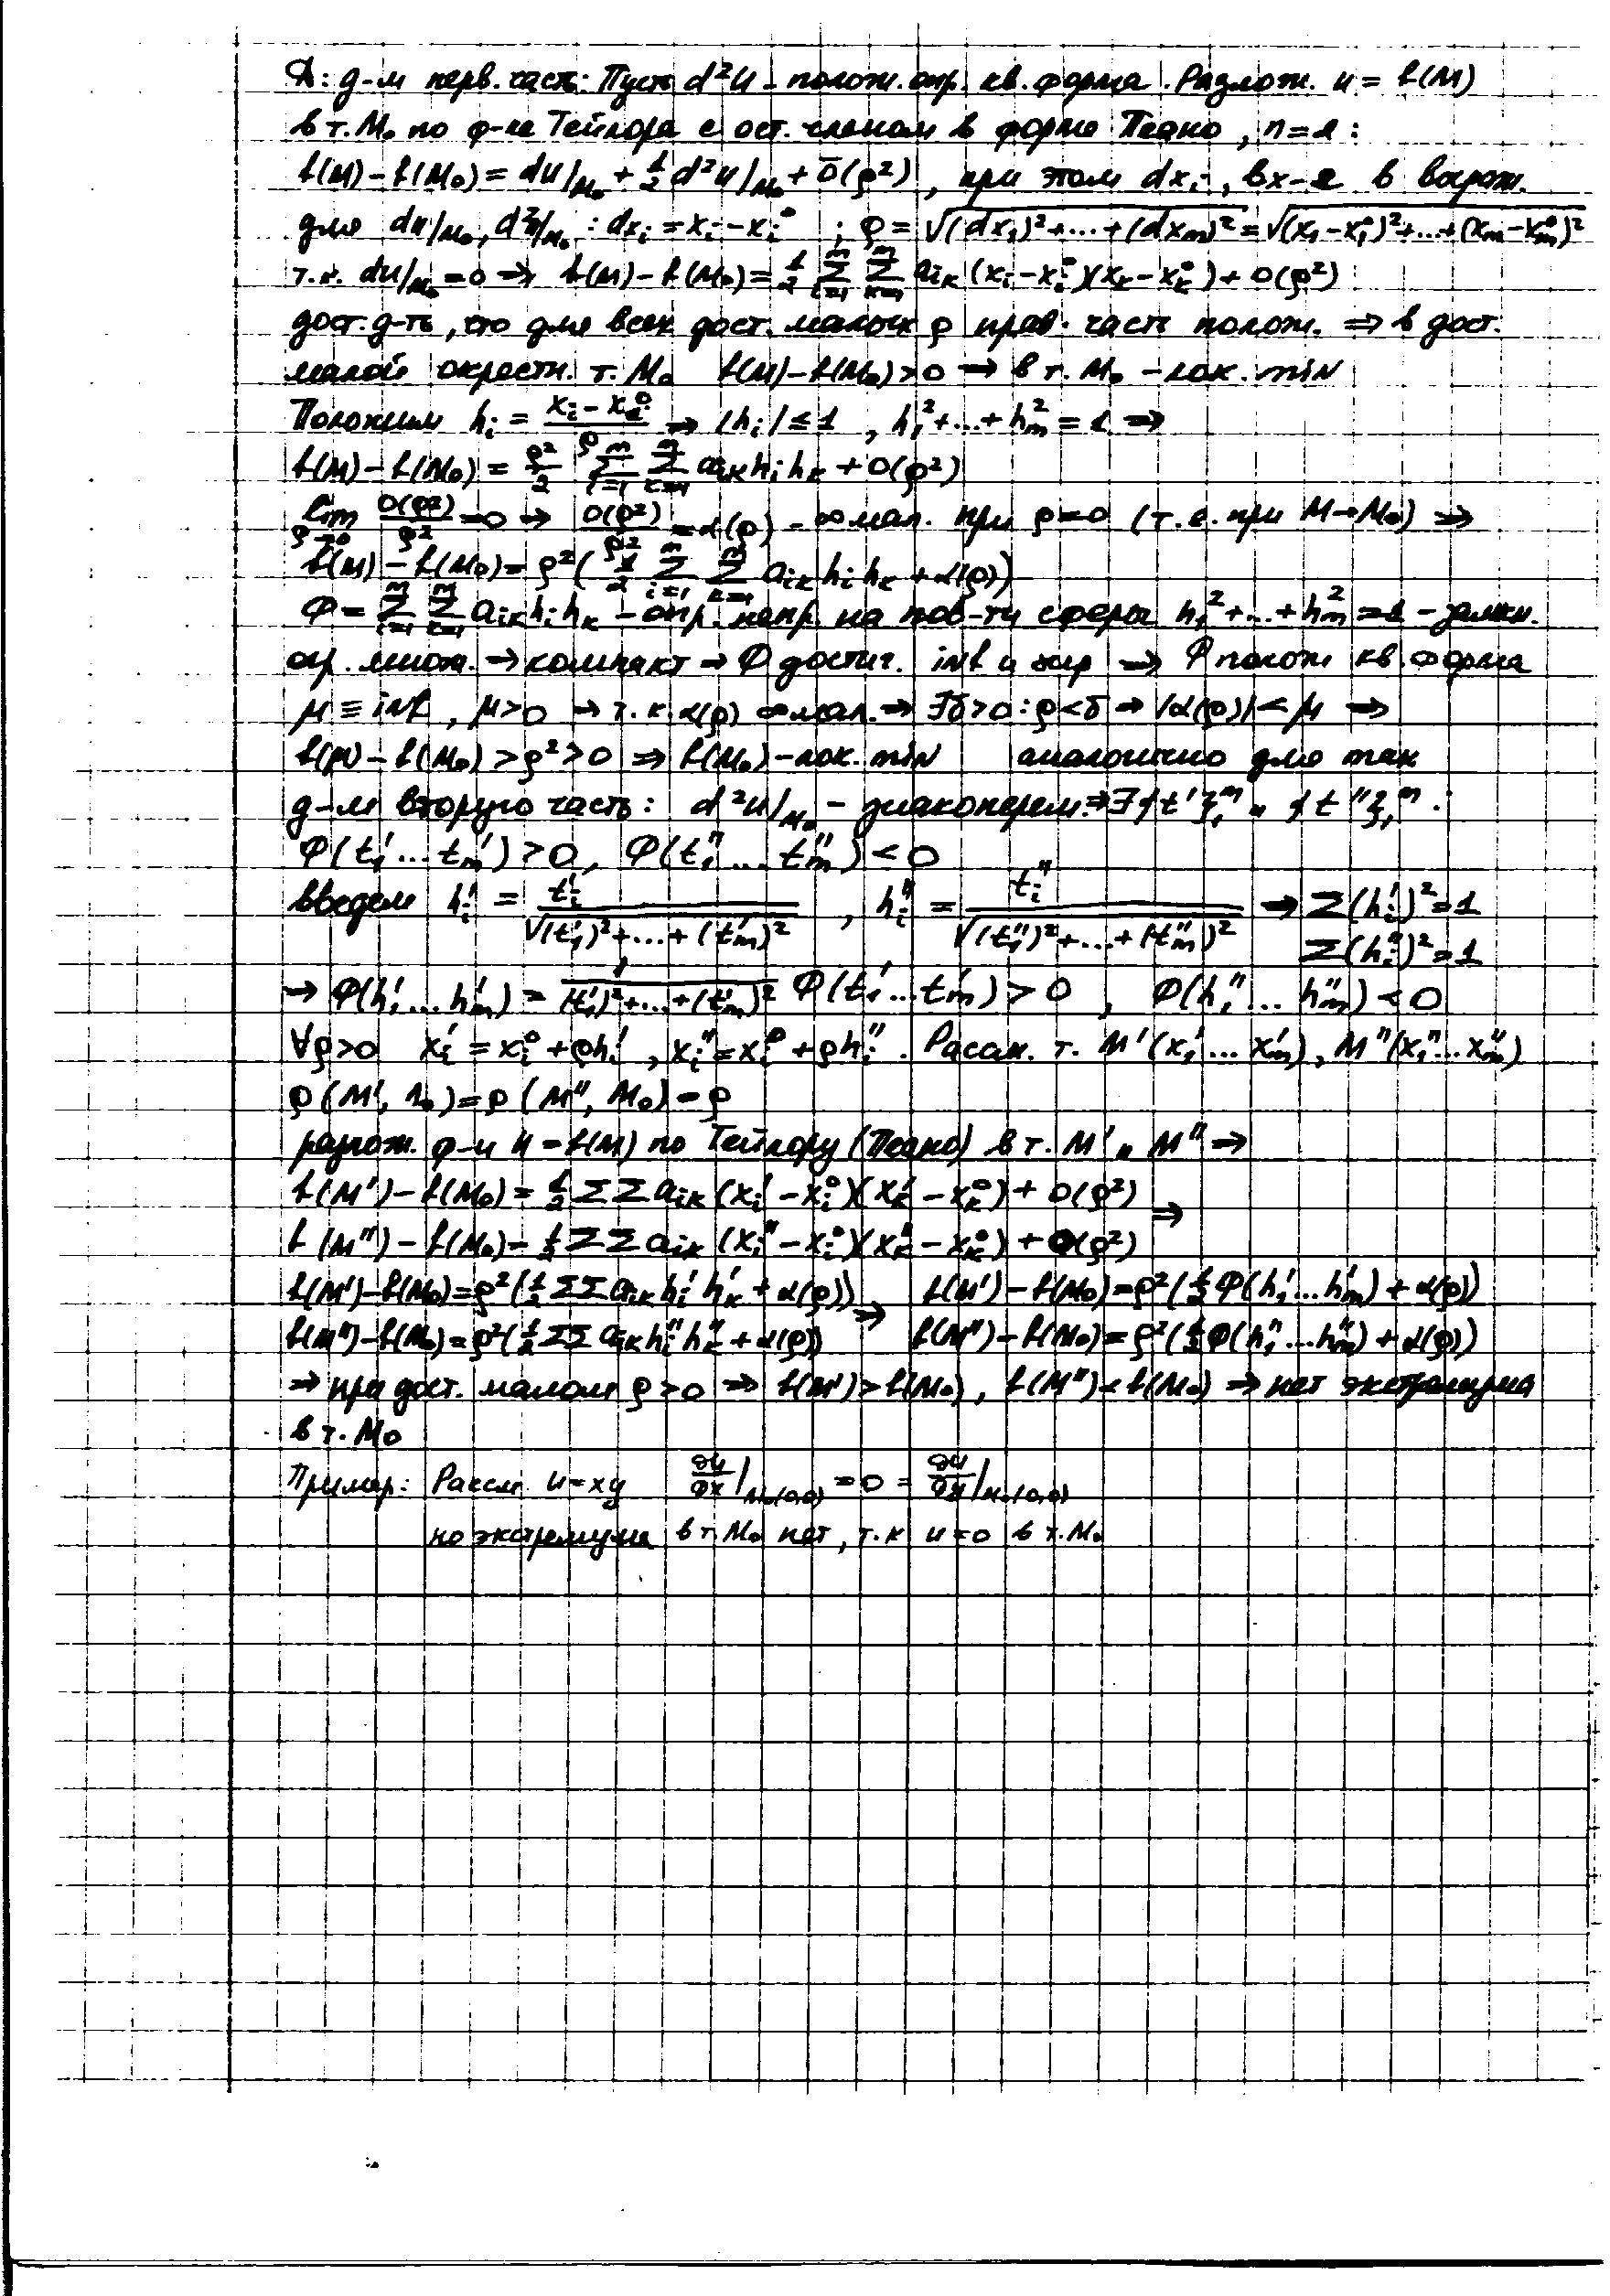 Д: д-м перв. часть: Пусть d²u - полож. опр. кв. форма. Разлож. u = f(M)
в т. M₀ по ф-ле Тейлора с ост. членом в форме Пеано, n=2:
f(M)-f(M₀) = du/M₀ + ½ d²u/M₀ + ō(ρ²), при этом dxᵢ, вх-е в выраж.
для du/M₀, d²u/M₀ : dxᵢ = xᵢ - xᵢ⁰ ; ρ = √((dx₁)²+...+(dxₘ)²) = √((x₁-x₁⁰)²+...+(xₘ-xₘ⁰)²)
т.к. du/M₀ = 0 ⇒ f(M)-f(M₀) = ½ Σᵢ₌₁ᵐ Σₖ₌₁ᵐ aᵢₖ (xᵢ-xᵢ⁰)(xₖ-xₖ⁰) + o(ρ²)
дост. д-ть, что для всех дост. малых ρ прав. часть полож. ⇒ в дост.
малой окрестн. т. M₀ f(M)-f(M₀) > 0 ⇒ в т. M₀ - лок. min
Положим hᵢ = (xᵢ - xᵢ⁰)/ρ ⇒ |hᵢ| ≤ 1 , h₁²+...+hₘ² = 1 ⇒
f(M)-f(M₀) = ρ²/2 Σᵢ₌₁ᵐ Σₖ₌₁ᵐ aᵢₖ hᵢ hₖ + o(ρ²)
lim ρ→0 o(ρ²)/ρ² = 0 ⇒ o(ρ²)/ρ² = α(ρ) - ∞ мал. при ρ=0 (т.е. при M→M₀) ⇒
f(M)-f(M₀) = ρ²(½ Σᵢ₌₁ᵐ Σₖ₌₁ᵐ aᵢₖ hᵢ hₖ + α(ρ))
Φ = Σᵢ₌₁ᵐ Σₖ₌₁ᵐ aᵢₖ hᵢ hₖ - опр. непр. на пов-ти сферы h₁²+...+hₘ² = 1 - замкн.
огр. множ. ⇒ компакт ⇒ Φ достиг. inf и sup ⇒ Φ полож кв. форма
μ ≡ inf, μ>0 ⇒ т.к α(ρ) ∞ мал. ⇒ ∃δ>0 : ρ<δ ⇒ |α(ρ)| < μ ⇒
f(M)-f(M₀) > ρ² > 0 ⇒ f(M₀) - лок. min аналогично для max
д-м вторую часть: d²u/M₀ - знакоперем. ⇒ ∃ {t'}₁ᵐ и {t''}₁ᵐ :
Φ(t₁'...tₘ') > 0, Φ(t₁''...tₘ'') < 0
введем hᵢ' = tᵢ'/√((t₁')²+...+(tₘ')²) , hᵢ'' = tᵢ''/√((t₁'')²+...+(tₘ'')²) ⇒ Σ(hᵢ')² = 1
Σ(hᵢ'')² = 1
⇒ Φ(h₁'...hₘ') = 1/((t₁')²+...+(tₘ')²) Φ(t₁'...tₘ') > 0 , Φ(h₁''...hₘ'') < 0
∀ρ>0 xᵢ' = xᵢ⁰ + ρhᵢ' , xᵢ'' = xᵢ⁰ + ρhᵢ''. Рассм. т. M'(x₁'...xₘ'), M''(x₁''...xₘ'')
ρ(M', M₀) = ρ(M'', M₀) = ρ
разлож. ф-и u = f(M) по Тейлору (Пеано) в т. M' и M'' ⇒
f(M')-f(M₀) = ½ ΣΣ aᵢₖ (xᵢ'-xᵢ⁰)(xₖ'-xₖ⁰) + o(ρ²) ⇒
f(M'')-f(M₀) = ½ ΣΣ aᵢₖ (xᵢ''-xᵢ⁰)(xₖ''-xₖ⁰) + o(ρ²)
f(M')-f(M₀) = ρ²(½ ΣΣ aᵢₖ hᵢ' hₖ' + α(ρ)) ⇒ f(M')-f(M₀) = ρ²(½ Φ(h₁'...hₘ') + α(ρ))
f(M'')-f(M₀) = ρ²(½ ΣΣ aᵢₖ hᵢ'' hₖ'' + α(ρ)) f(M'')-f(M₀) = ρ²(½ Φ(h₁''...hₘ'') + α(ρ))
⇒ при дост. малом ρ>0 ⇒ f(M') > f(M₀), f(M'') < f(M₀) ⇒ нет экстремума
в т. M₀
Пример: Рассм u = xy ∂u/∂x |M₀(0,0) = 0 = ∂u/∂y |M₀(0,0)
но экстремума в т. M₀ нет, т.к u=0 в т. M₀